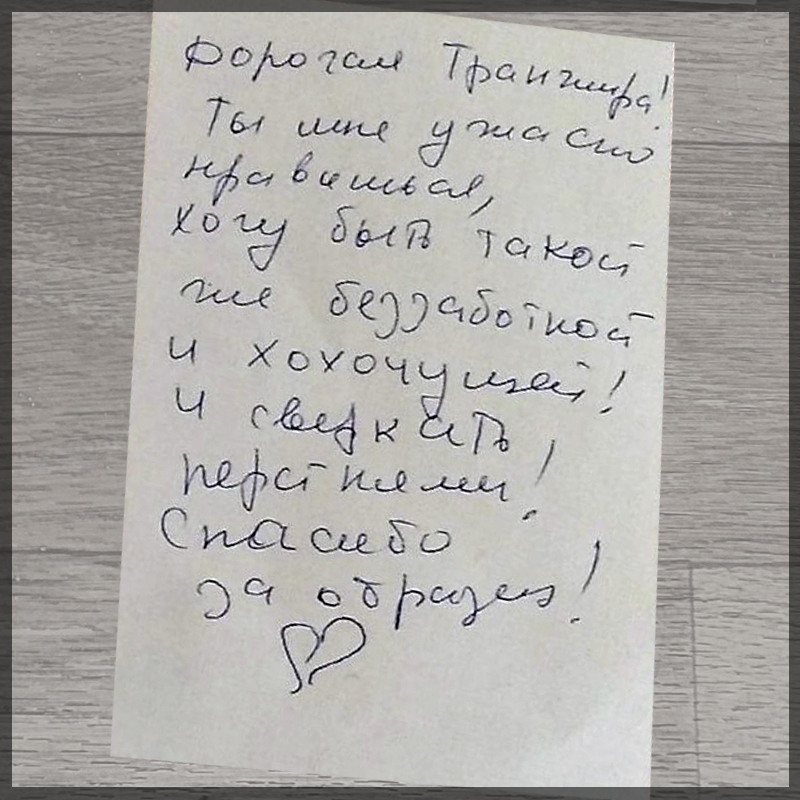 Дорогая Транжира!
Ты мне ужасно
нравишься,
хочу быть такой
же беззаботной
и хохочущей!
И сверкать
перстнями!
Спасибо
за образец!